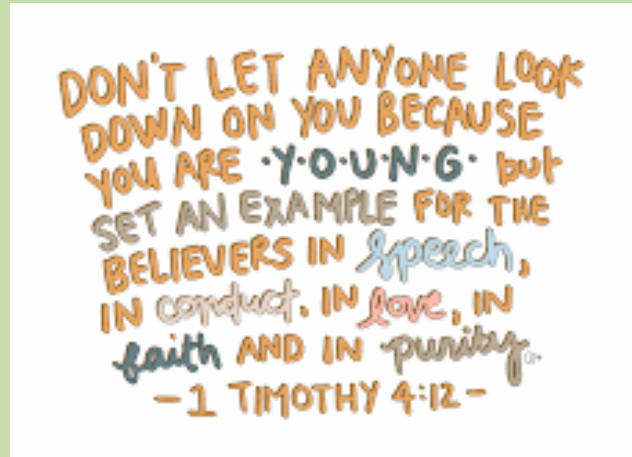 DON'T LET ANYONE LOOK
DOWN ON YOU BECAUSE
YOU ARE ·Y·O·U·N·G· but
SET AN EXAMPLE FOR THE
BELIEVERS IN speech,
IN conduct, IN love, IN
faith AND IN purity
-1 TIMOTHY 4:12-